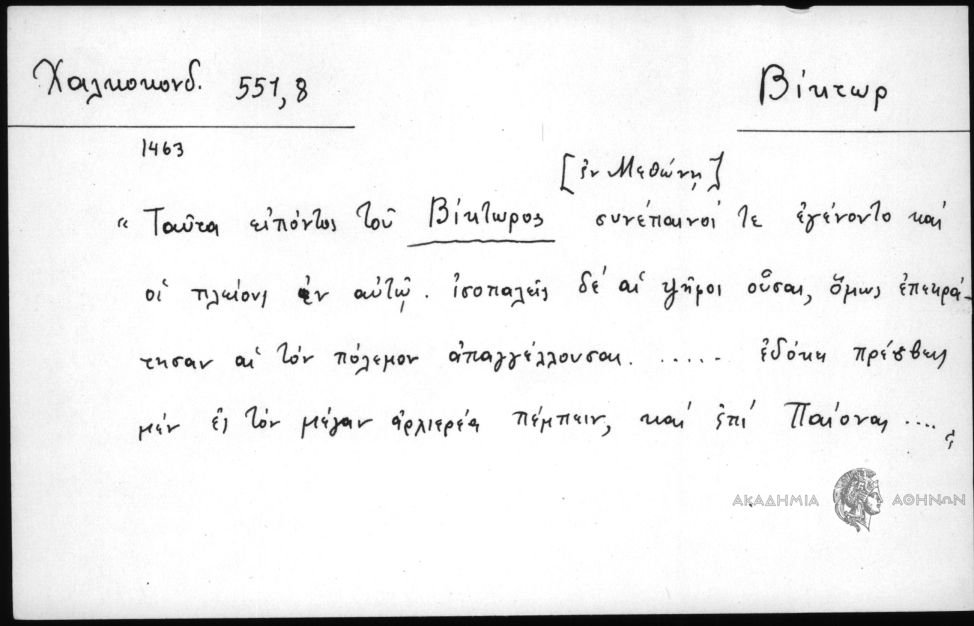 Χαλκοκονδ. 551,8
Βίκτωρ
1463
[ἐν Μεθώνῃ]
“ Ταῦτα εἰπόντος τοῦ Βίκτωρος συνέπαινοί τε ἐγένοντο καί
οἱ πλείους ἐν αὐτῷ. ἰσοπαλεῖς δέ αἱ ψῆφοι οὖσαι, ὅμως ἐπεκρά-
τησαν αἱ τόν πόλεμον ἀπαγγέλλουσαι. ...... ἐδόκει πρέσβεις
μέν εἰς τόν μέγαν ἀρχιερέα πέμπειν, καί ἐπί Παίονας ....
ΑΚΑΔΗΜΙΑ ΑΘΗΝΩΝ